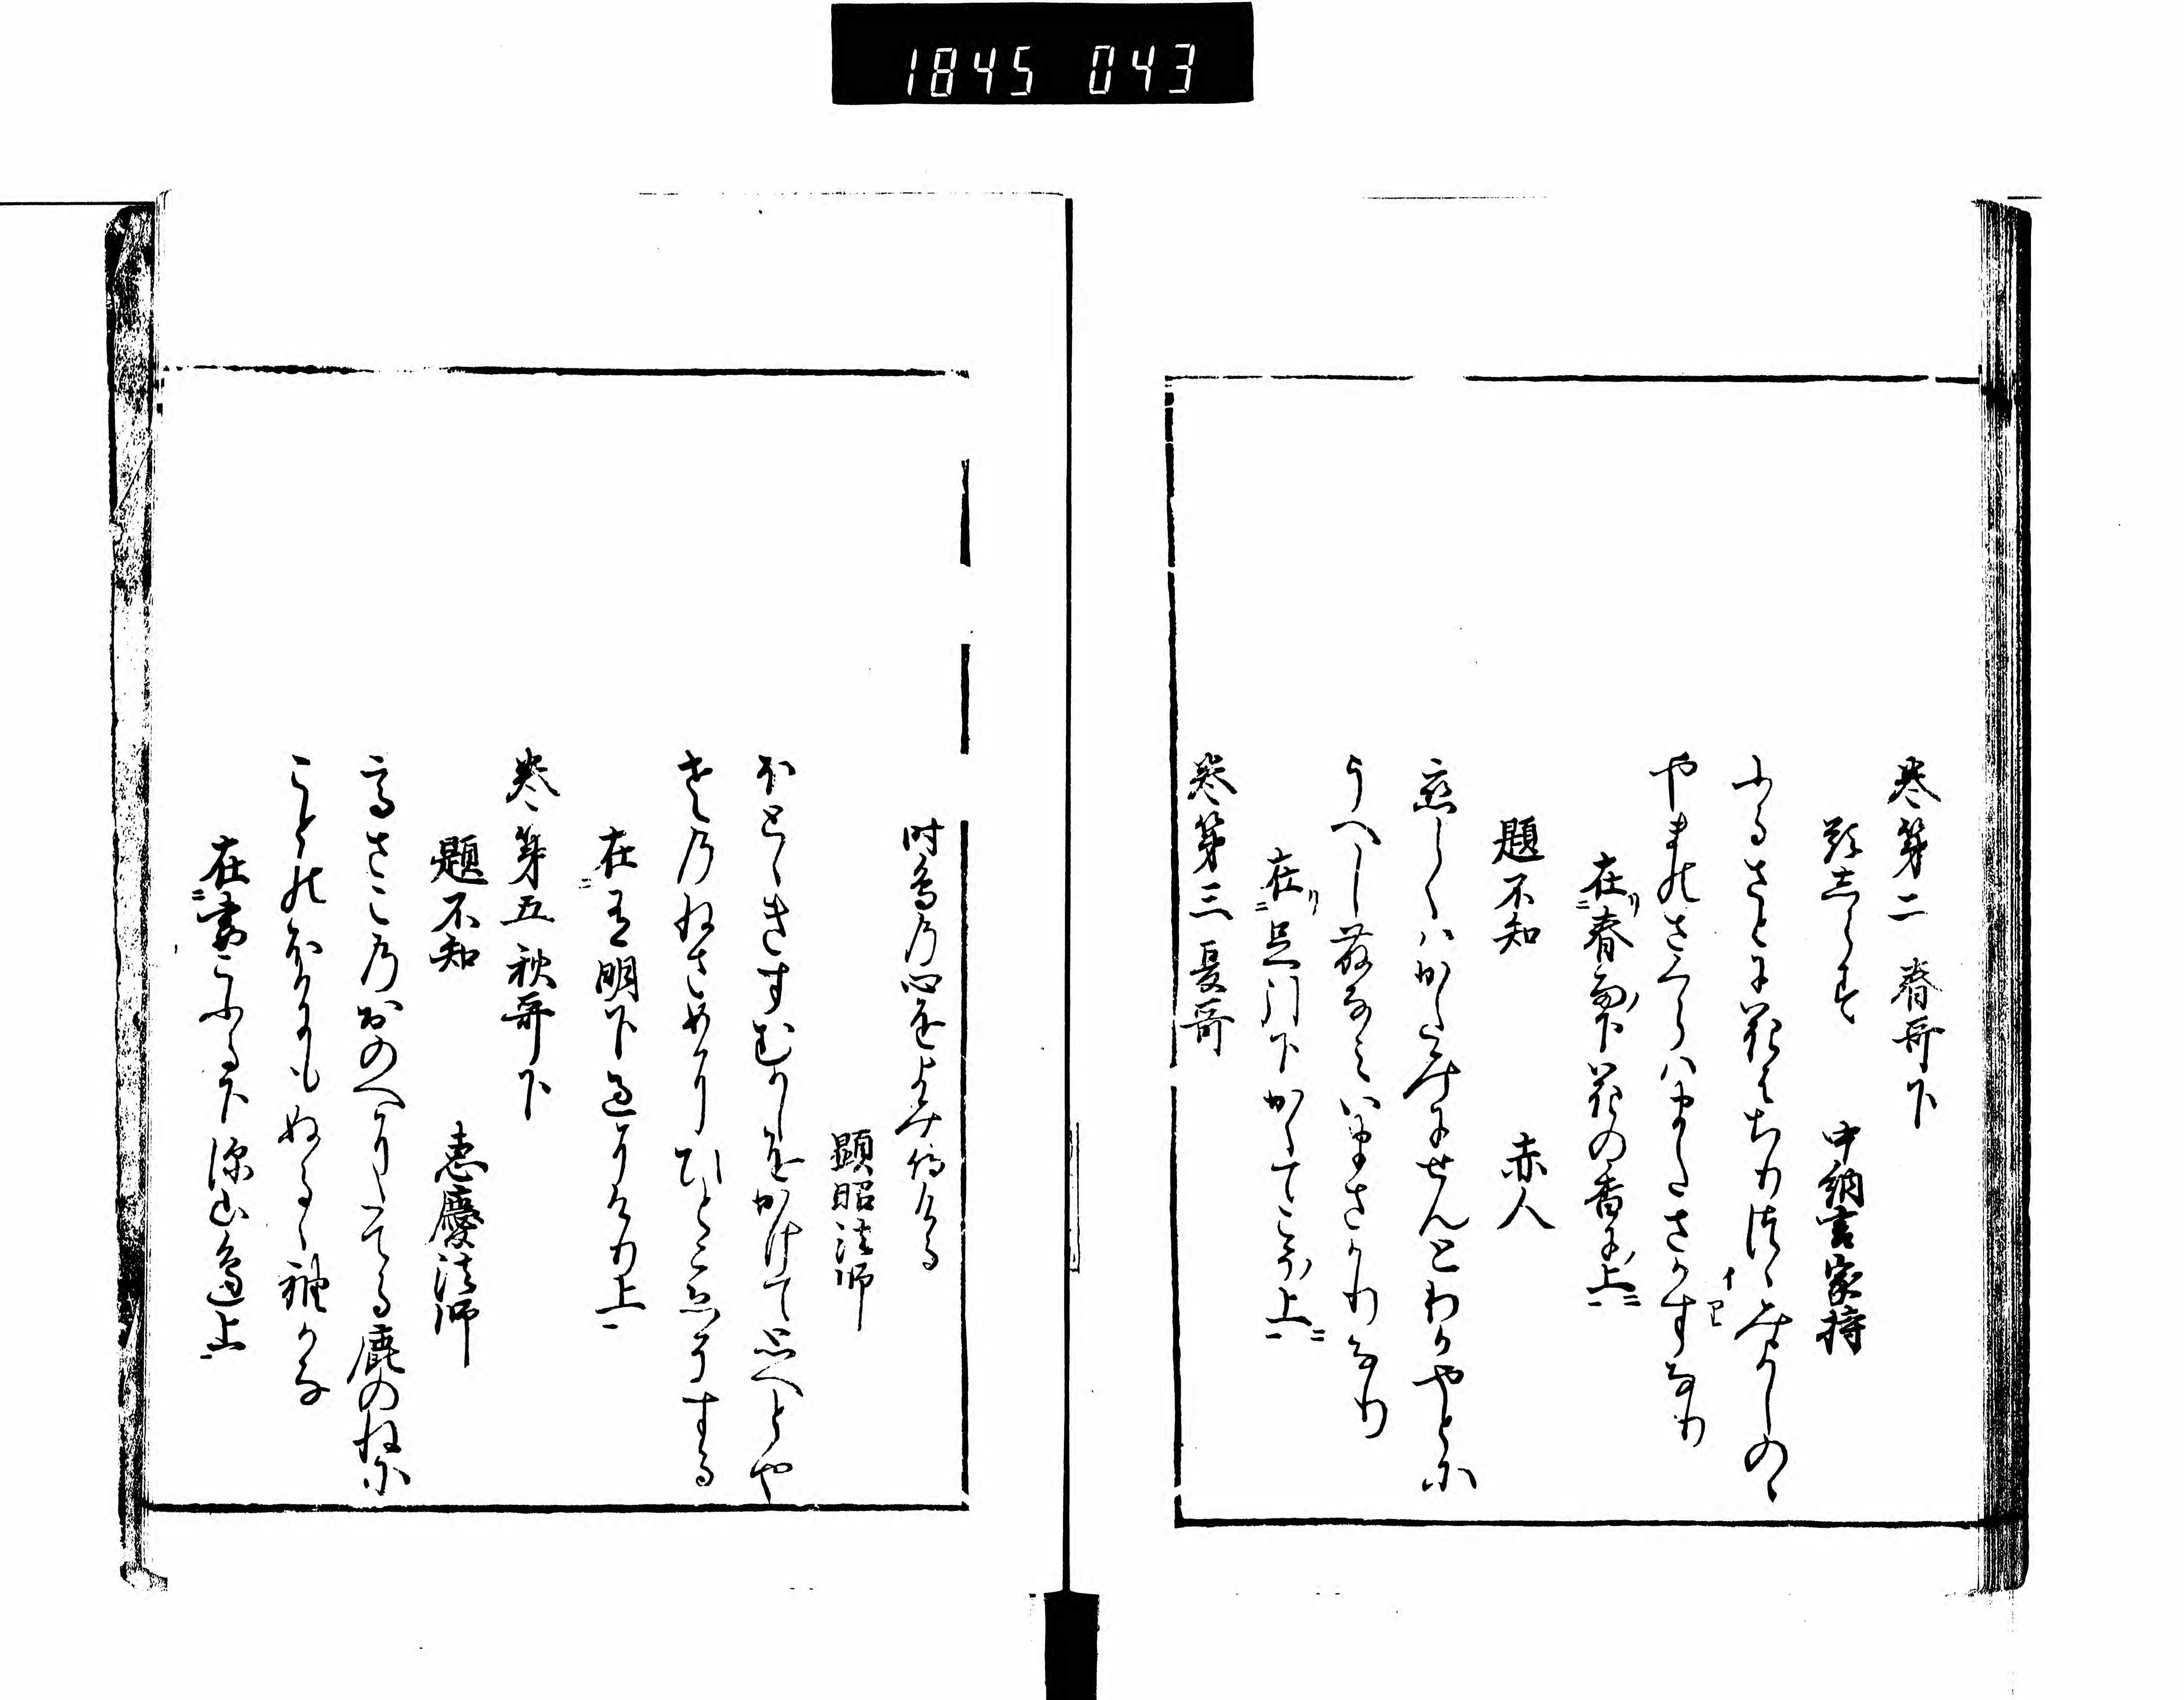 1845 043
巻第二 春哥下
題しらす 中納言家持
ふるさとに花はちりつゝみよしのゝ
やまのさくらはまたさかすなり
イ
題不知 赤人
恋しくはかたみにせんとわかやとに
うへし藤なみいまさかりなり
在足引下かくてこそ上
巻第三 夏哥
時鳥の心をよみ侍ける
顕昭法師
ほとゝきすむかしをかけて忍へとや
老のねさめにひとこゑそする
在有明下過にけり上
巻第五 秋哥下
題不知 恵慶法師
高さこのおのへにたてる鹿のねに
ことのほかにもぬるゝ袖かな
在妻こふる下深山邊上